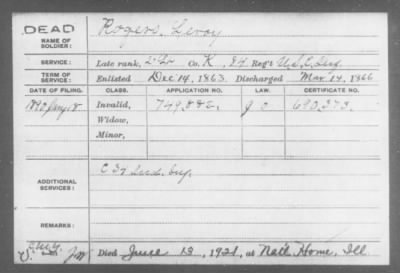 DEAD
NAME OF SOLDIER: Rogers, Leroy
SERVICE: Late rank, Co. K, 84 Reg't U.S.C. Inf.
TERM OF SERVICE: Enlisted Dec 14, 1863. Discharged Mar 14, 1866
DATE OF FILING. CLASS. APPLICATION NO. LAW. CERTIFICATE NO.
1890 Invalid, 749,882. 690,373.
Widow,
Minor,
ADDITIONAL SERVICES: C 37 Ind. Inf.
REMARKS:
Died June 13, 1921, at Nat'l Home, Ill.